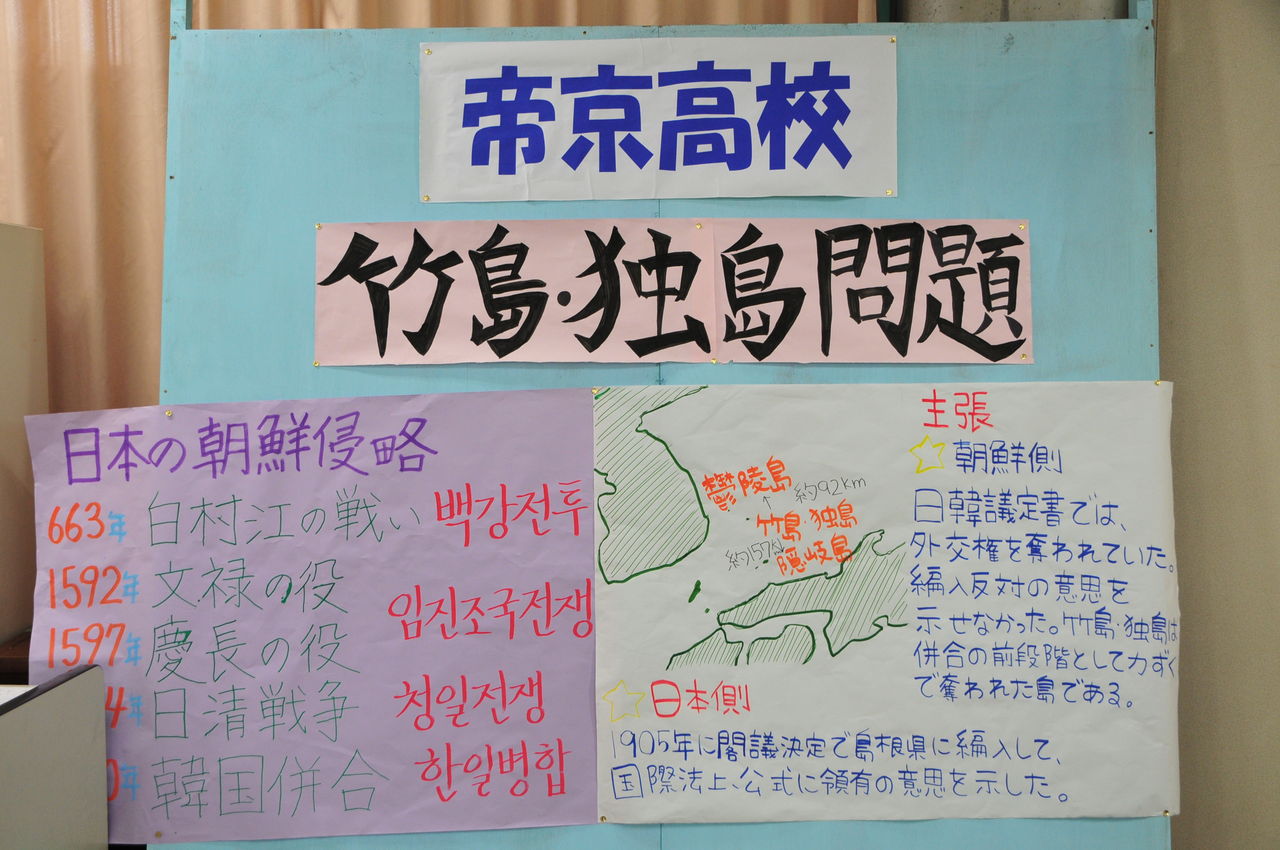 帝京高校
竹島・独島問題
日本の朝鮮侵略
663年 白村江の戦い 백강전투
1592年 文禄の役
임진조국전쟁
1597年 慶長の役
4年 日清戦争 청일전쟁
0年 韓国併合 한일병합
鬱陵島
約92km
竹島・独島
約157km
隠岐島
主張
朝鮮側
日韓議定書では、
外交権を奪われていた。
編入反対の意思を
示せなかった。竹島・独島は
併合の前段階として力ずく
で奪われた島である。
日本側
1905年に閣議決定で島根県に編入して、
国際法上、公式に領有の意思を示した。